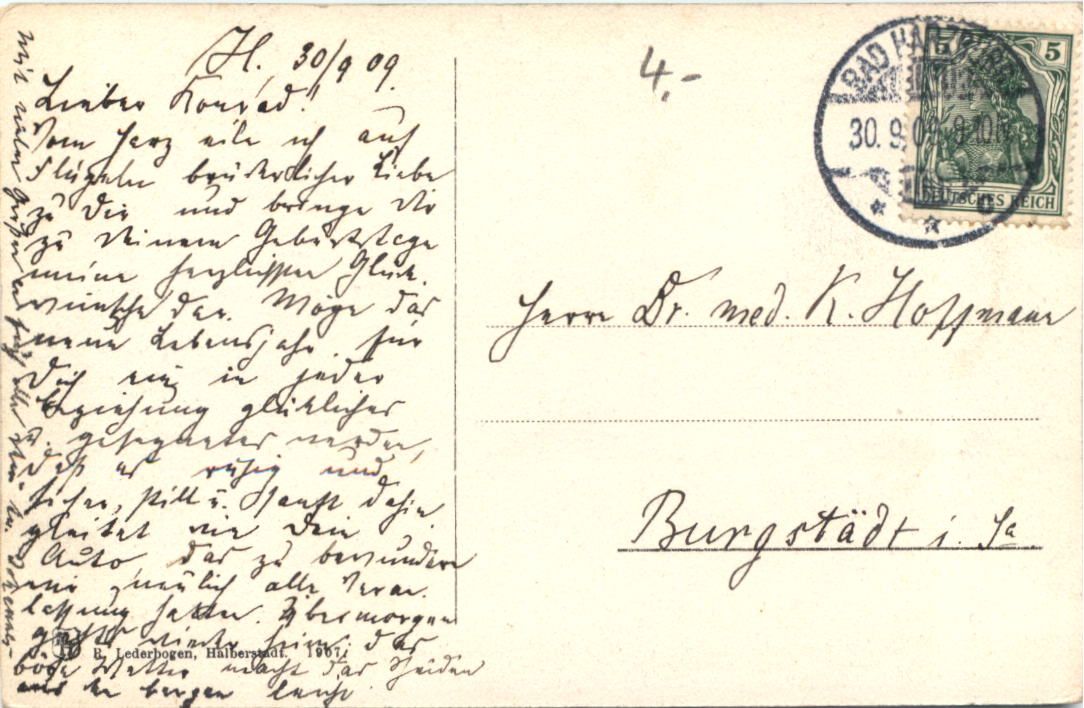 H. 30/9 09.
Lieber Konrad!
Vom Harz eile ich auf
Flügeln brüderlicher Liebe
zu Dir und bringe Dir
zu Deinem Geburtstage
meine herzlichsten Glück-
wünsche dar. Möge das
neue Lebensjahr für
Dich ein in jeder
Beziehung glückliches
u. gesegnetes werden,
daß es ruhig und
sicher, still u. sanft dahin
gleitet wie Dein
Auto, das zu bewundern
wir neulich alle Veran-
lassung hatten. Übermorgen
geht's wieder heim; das
böse Wetter macht das Scheiden
aus den Bergen leicht.
Mit vielen Grüßen
4,-
BAD HARZBURG
30. 9. 09. 9-10 N.
5
DEUTSCHES REICH
Herrn Dr. med. K. Hoffmann
Burgstädt i. Sa.
R. Lederbogen, Halberstadt. 1907.